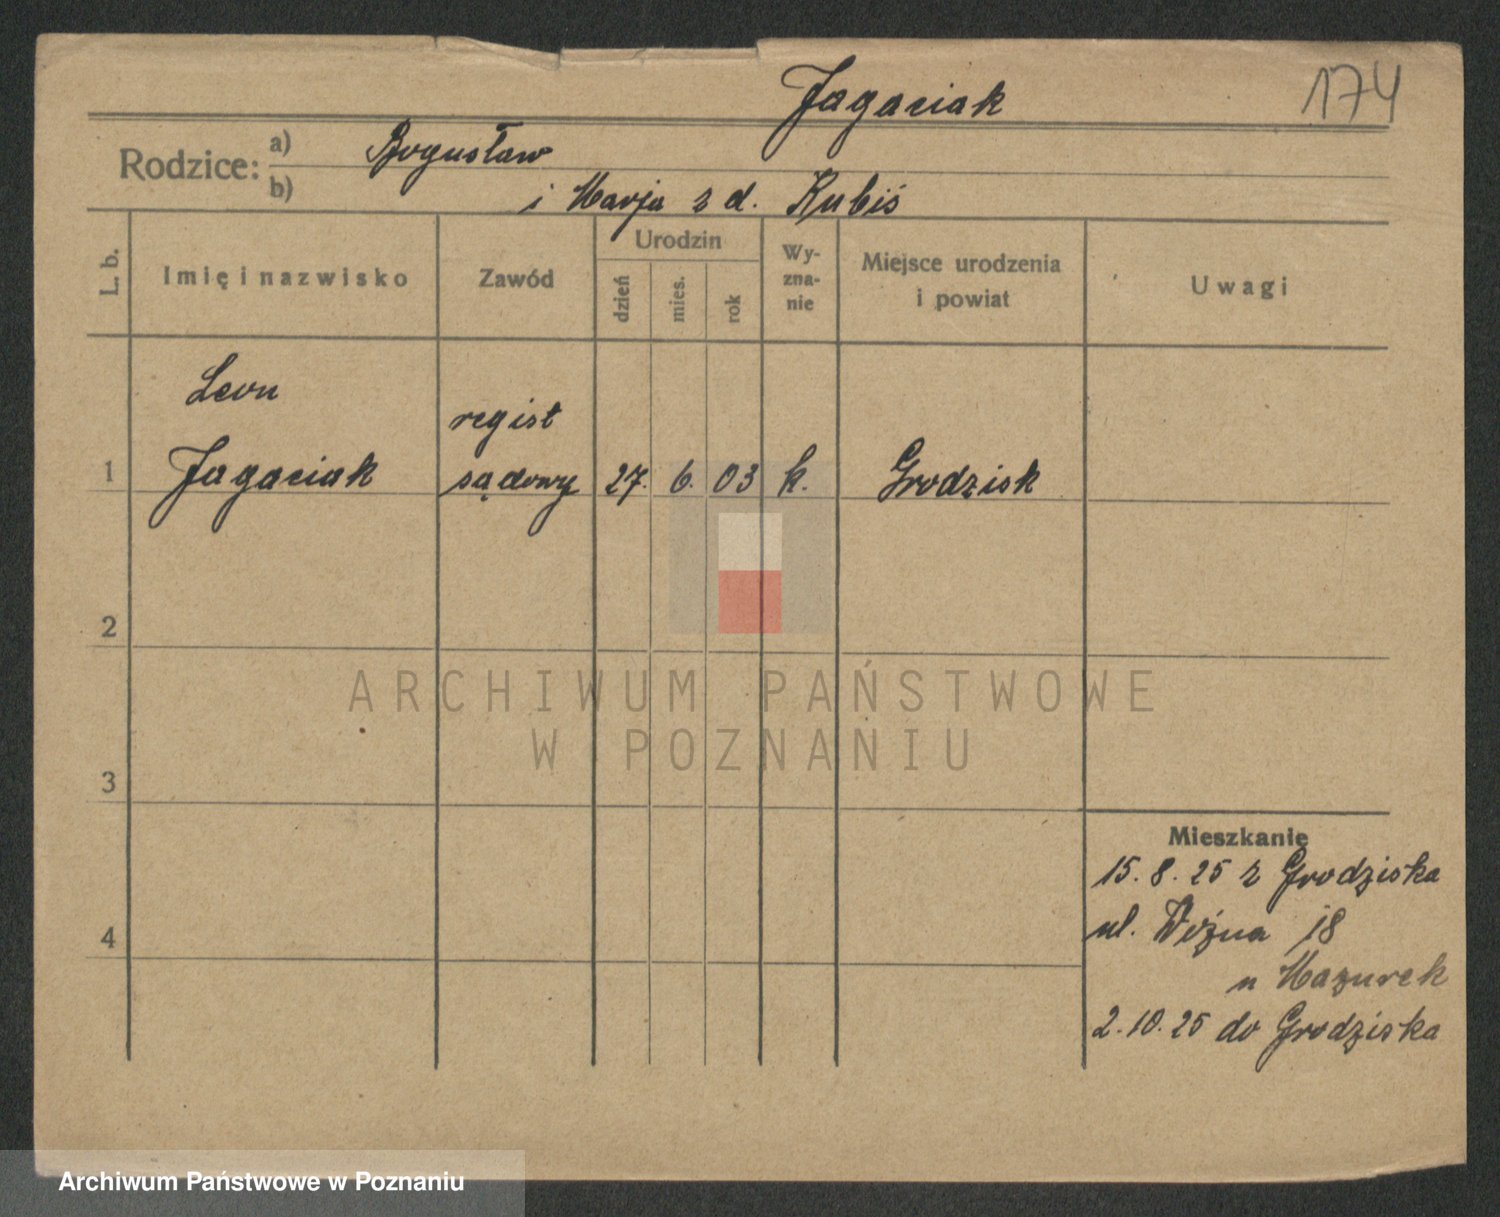 Jagaciak
174
Rodzice:
a) Bogusław
b) i Marja z d. Kubiś
L. b.
Imię i nazwisko
Zawód
Urodzin
dzień
mies.
rok
Wy-
zna-
nie
Miejsce urodzenia
i powiat
Uwagi
Leon
regist
1 Jagaciak sądowy 27. 6. 03 k. Grodzisk
2
ARCHIWUM PAŃSTWOWE
W POZNANIU
3
Mieszkanie
15. 8. 25 z Grodziska
4
ul. Woźna 18
u Mazurek
2. 10. 25 do Grodziska
Archiwum Państwowe w Poznaniu